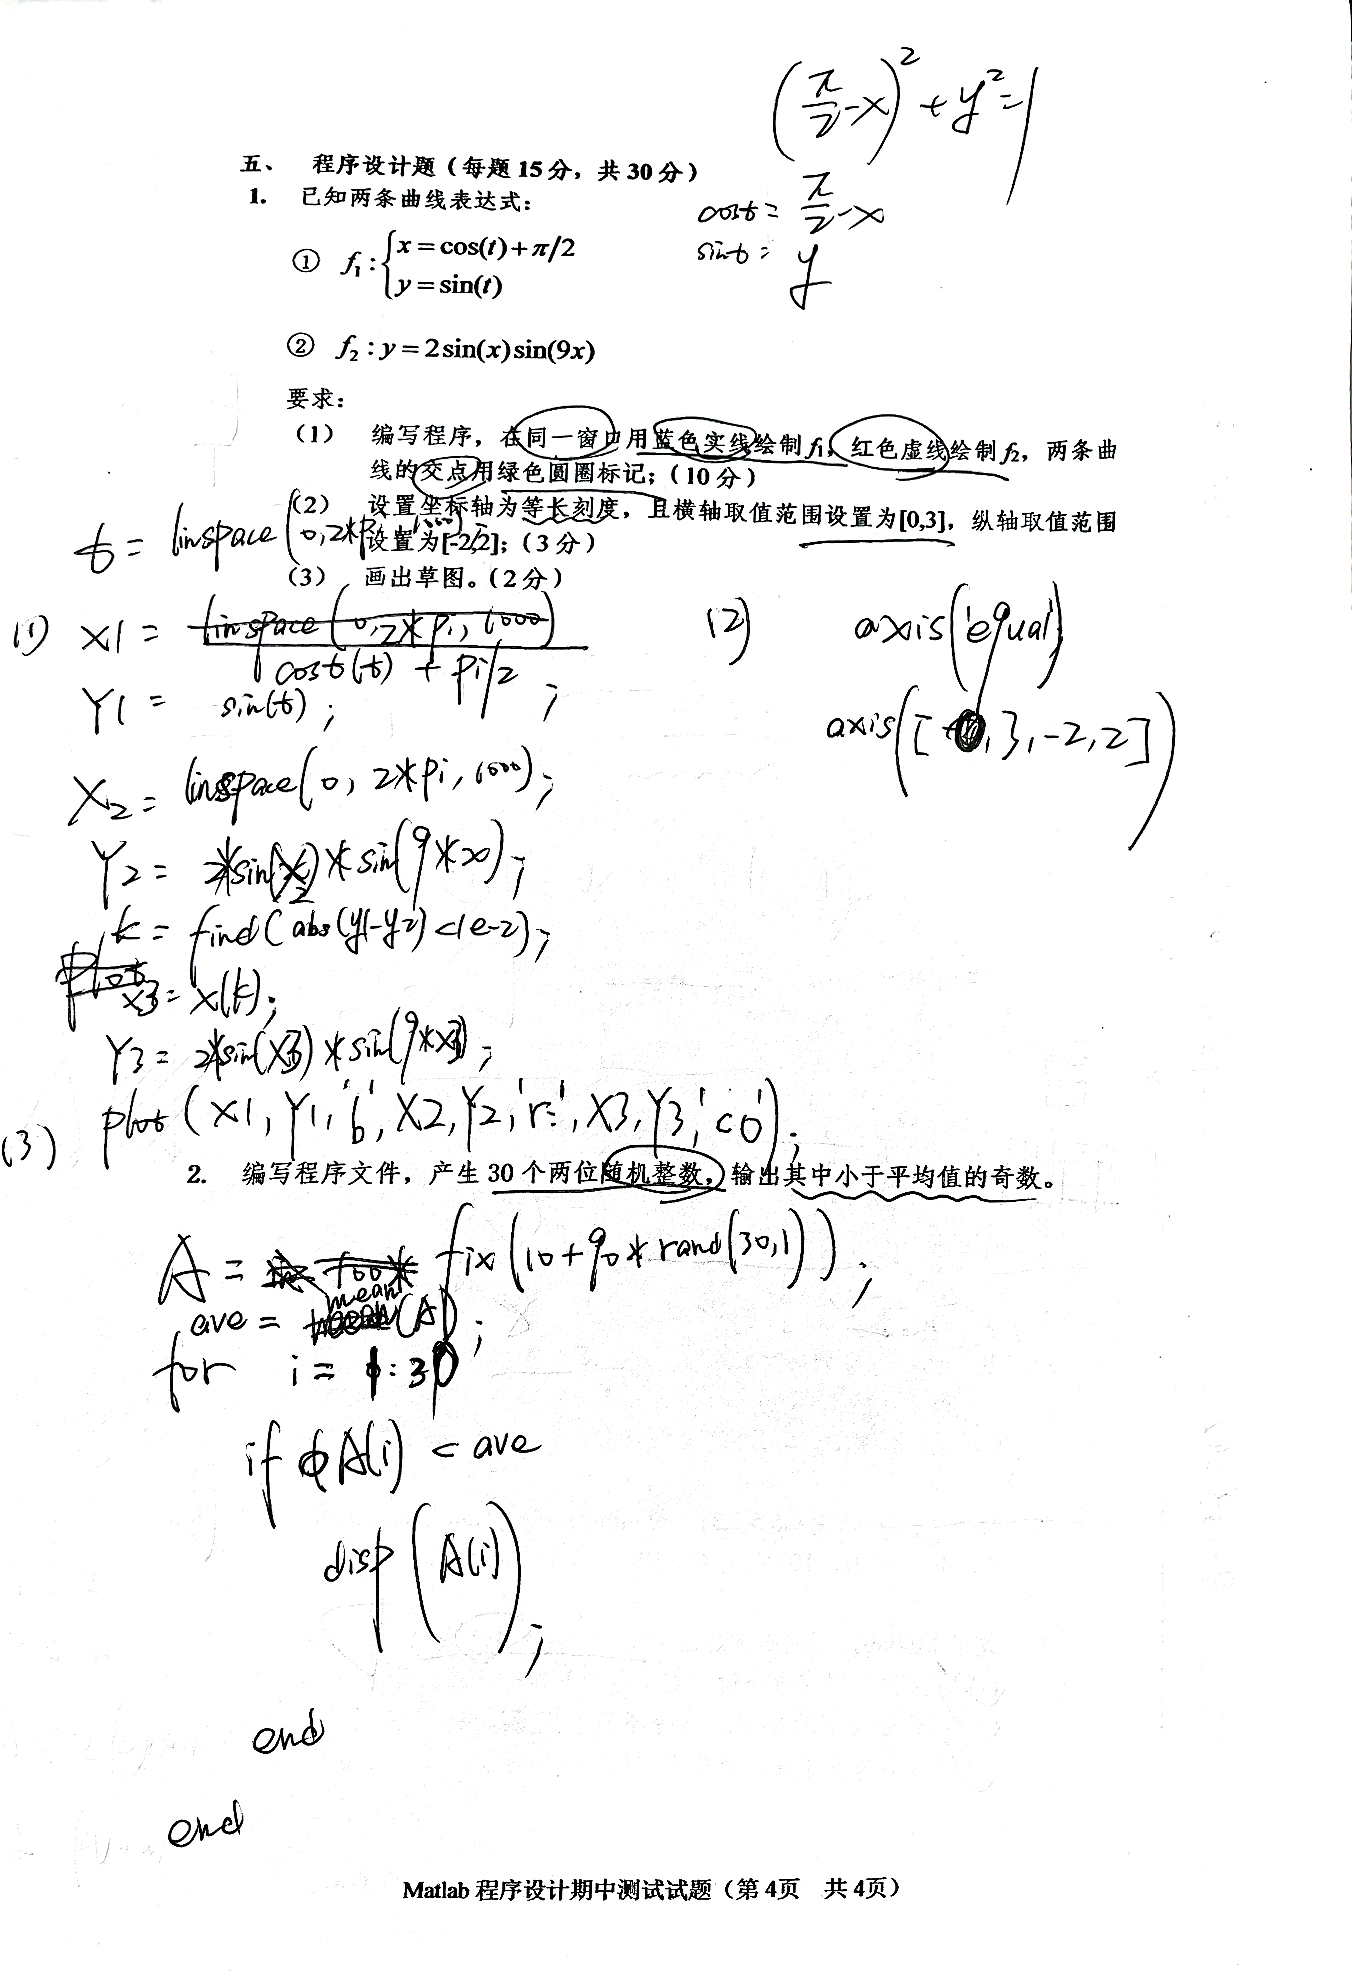 (π/2-x)²+y²=1
五、 程序设计题(每题15分,共30分)
1. 已知两条曲线表达式:
cost= π/2-x
sint= y
① f₁:{x=cos(t)+π/2
y=sin(t)
② f₂:y=2sin(x)sin(9x)
要求:
(1) 编写程序,在同一窗口用蓝色实线绘制f₁,红色虚线绘制f₂,两条曲
线的交点用绿色圆圈标记;(10分)
(2) 设置坐标轴为等长刻度,且横轴取值范围设置为[0,3],纵轴取值范围
设置为[-2,2];(3分)
(3) 画出草图。(2分)
t= linspace(0,2*pi,1000);
(1) X1= linspace(0,2*pi,1000)
cost(t) + pi/2;
Y1= sin(t);
X2= linspace(0, 2*pi, 1000);
Y2= 2*sin(X2)*sin(9*x);
k= find(abs(y1-y2)<1e-2);
plot
x3= x(k);
Y3= 2*sin(X3)*sin(9*x3);
plot(X1,Y1,'b',X2,Y2,'r:',X3,Y3,'co');
(2) axis('equal')
axis([0,3,-2,2])
(3)
2. 编写程序文件,产生30个两位随机整数,输出其中小于平均值的奇数。
A= fix(10+90*rand(30,1));
ave= mean(A);
for i= 1:30
if A(i) < ave
disp(A(i));
end
end
Matlab 程序设计期中测试试题(第4页 共4页)